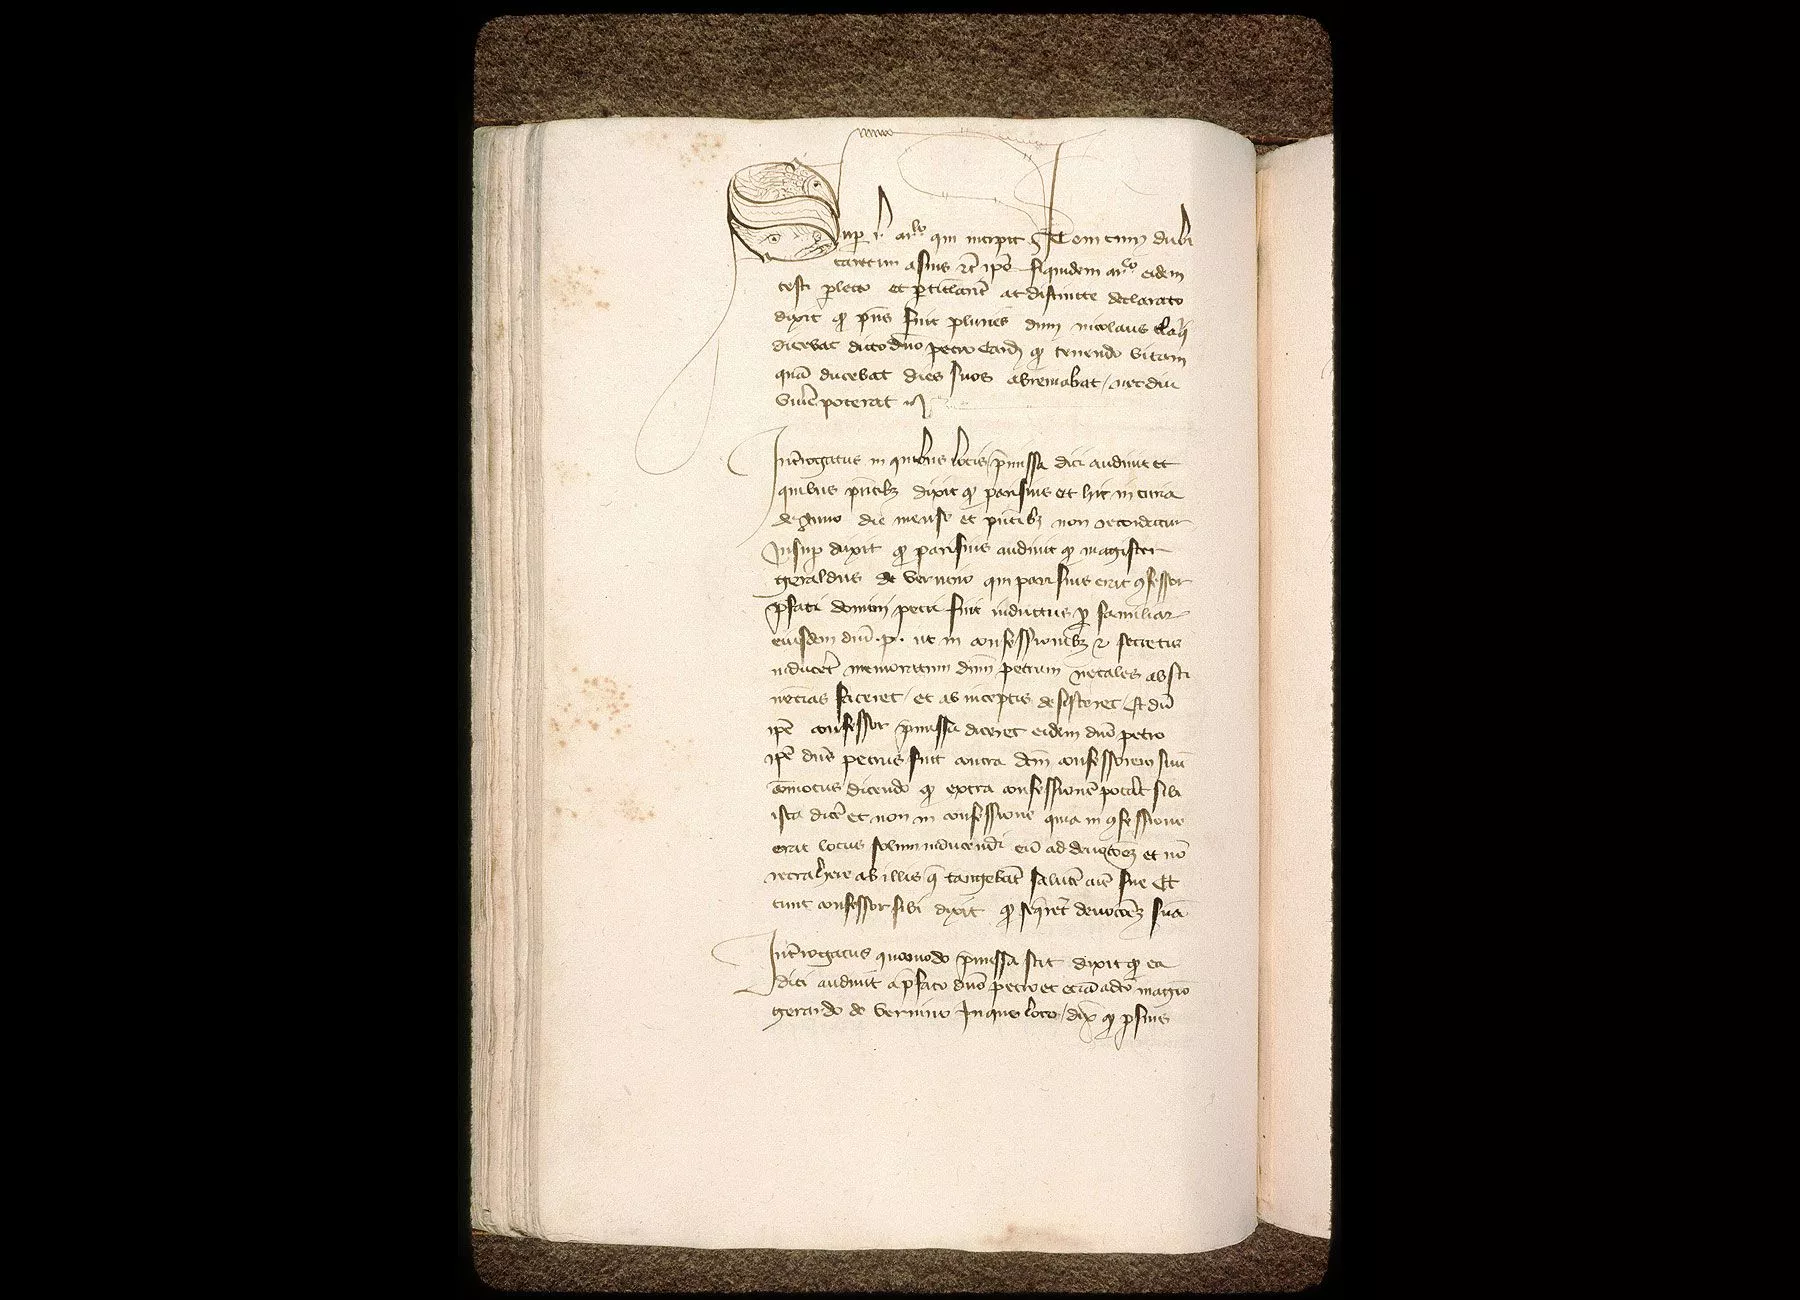 Sup qui incipit Item cum dubi
taretur a suis ipse siquidem arlo eidem
testi plecto et ac distincte declarato
dixit qp pns fuit pluries dum nicolaus
dicebat dicto dno petro Card qp tenendo vitam
quā ducebat dies suos abreuiabat / nec diu
viuē poterat
Int̄rogatus in quibus locis p̄missa dici audiuit et
quibus pn̄tibz dixit qp parisius et hic in curia
de Anno die mense et pn̄tibz non recordatur
Insup dixit qp parisius audiuit qp magister
geraldus de qui parisius erat ꝯfessor
p̄fati domini petri fuit inductus p familiar
eiusdem dni . p . ut in confessionibz et secretis
induceret memoratum dnm petrum ne tales absti
nētias faceret / et ab inceptis desisteret / Et dū
ipē confessor p̄missa diceret eidem dnō petro
ipē dn̄s petrus fuit contra dcm confessorem suū
cōmotus dicendo qp extra confessionē poterat sibi
ista dicē et non in confessione quia in ꝯfessione
erat locus solum inducendi eū ad deuotōez et nō
retrahere ab illis q̄ tangebāt salutē aīe sue Et
tunc confessor sibi dixit qp seq̄ret̄ deuotōez suā
Int̄rogatus quomodo p̄missa scit dixit qp ea
dici audiuit a p̄fato dnō petro et etiā a dcō magrō
gerardo de In quo loco / dix qp psius